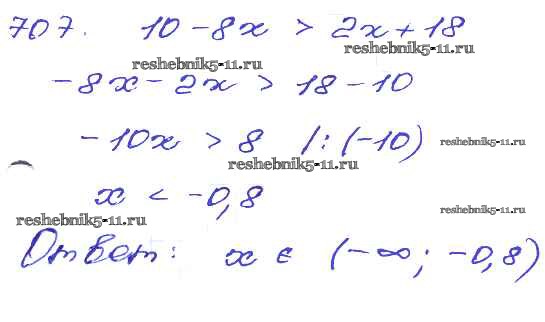 707. 10 - 8x > 2x + 18
reshebnik5-11.ru
reshebnik5-11.ru
-8x - 2x > 18 - 10
-10x > 8 /:(-10)
reshebnik5-11.ru
reshebnik5-11.ru
x < -0,8
reshebnik5-11.ru
reshebnik5-11.ru
Ответ: x ∈ (-∞; -0,8)